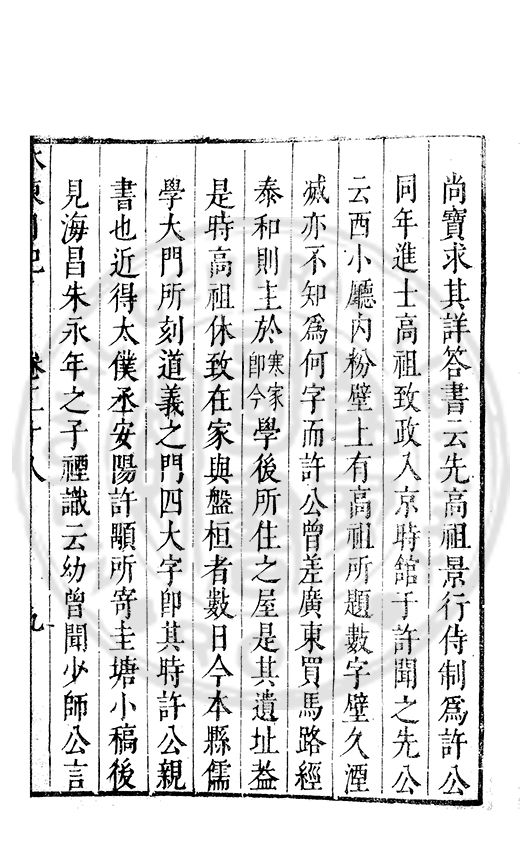 尚寶求其詳答書云先高祖景行侍制爲許公
同年進士高祖致政入京時舘于許聞之先公
云西小廳內粉壁上有高祖所題數字壁久湮
滅亦不知爲何字而許公曾差廣東買馬路經
泰和則主於寒家卽今學後所住之屋是其遺址葢
是時高祖休致在家與盤桓者數日今本縣儒
學大門所刻道義之門四大字卽其時許公親
書也近得太僕丞安陽許顒所寄圭塘小稿後
見海昌朱永年之子禋識云幼曾聞少師公言
卷二十八
九